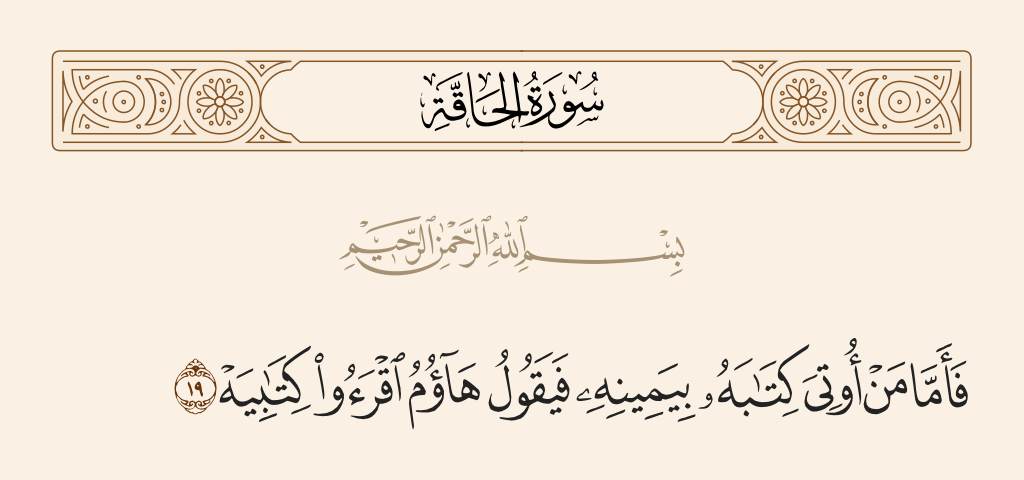 سُورَةُ الحَاقَّةِ
بِسْمِ ٱللَّهِ ٱلرَّحْمَٰنِ ٱلرَّحِيمِ
فَأَمَّا مَنْ أُوتِىَ كِتَٰبَهُۥ بِيَمِينِهِۦ فَيَقُولُ هَآؤُمُ ٱقْرَءُوا۟ كِتَٰبِيَهْ ١٩